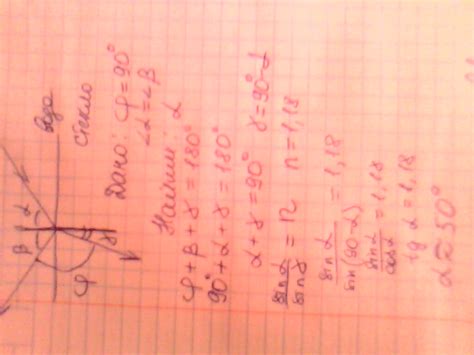 вода
стекло
α
β
γ
φ
Дано: φ=90°
∠α=∠β
Найти: α
φ+β+γ=180°
90°+α+γ=180°
α+γ=90° γ=90°-α
sinα/sinγ = n n=1,18
sinα/sin(90-α) = 1,18
sinα/cosα = 1,18
tg α = 1,18
α≈50°